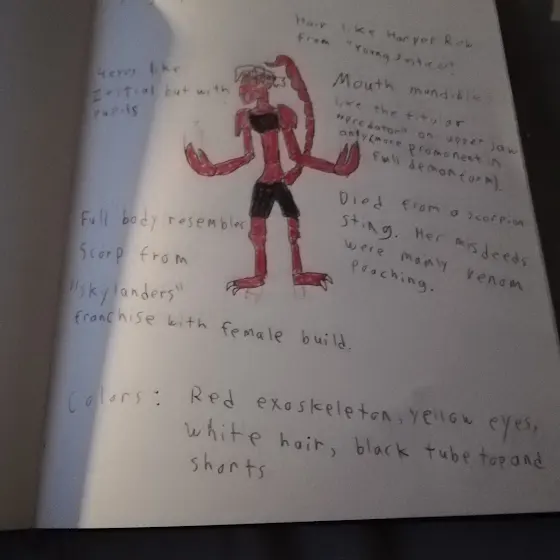 Hair like Harper Row
from "Young Justice".
4 eyes like
Zestial but with
pupils
Mouth mandibles
like the titular
"predator" on upper jaw
only (more promonent in
full demon form).
Died from a scorpion
sting. Her misdeeds
were mainly venom
poaching.
Full body resembles
Scorp from
"skylanders"
franchise with female build.
Colors: Red exoskeleton, yellow eyes,
white hair, black tube top and
shorts